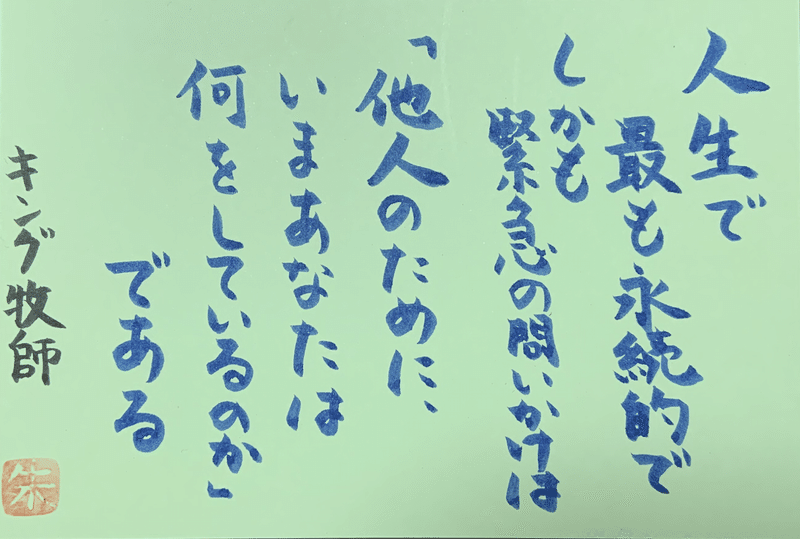 人生で
最も永続的で
しかも
緊急の問いかけは
「他人のために、
いまあなたは
何をしているのか」
である
キング牧師
朱